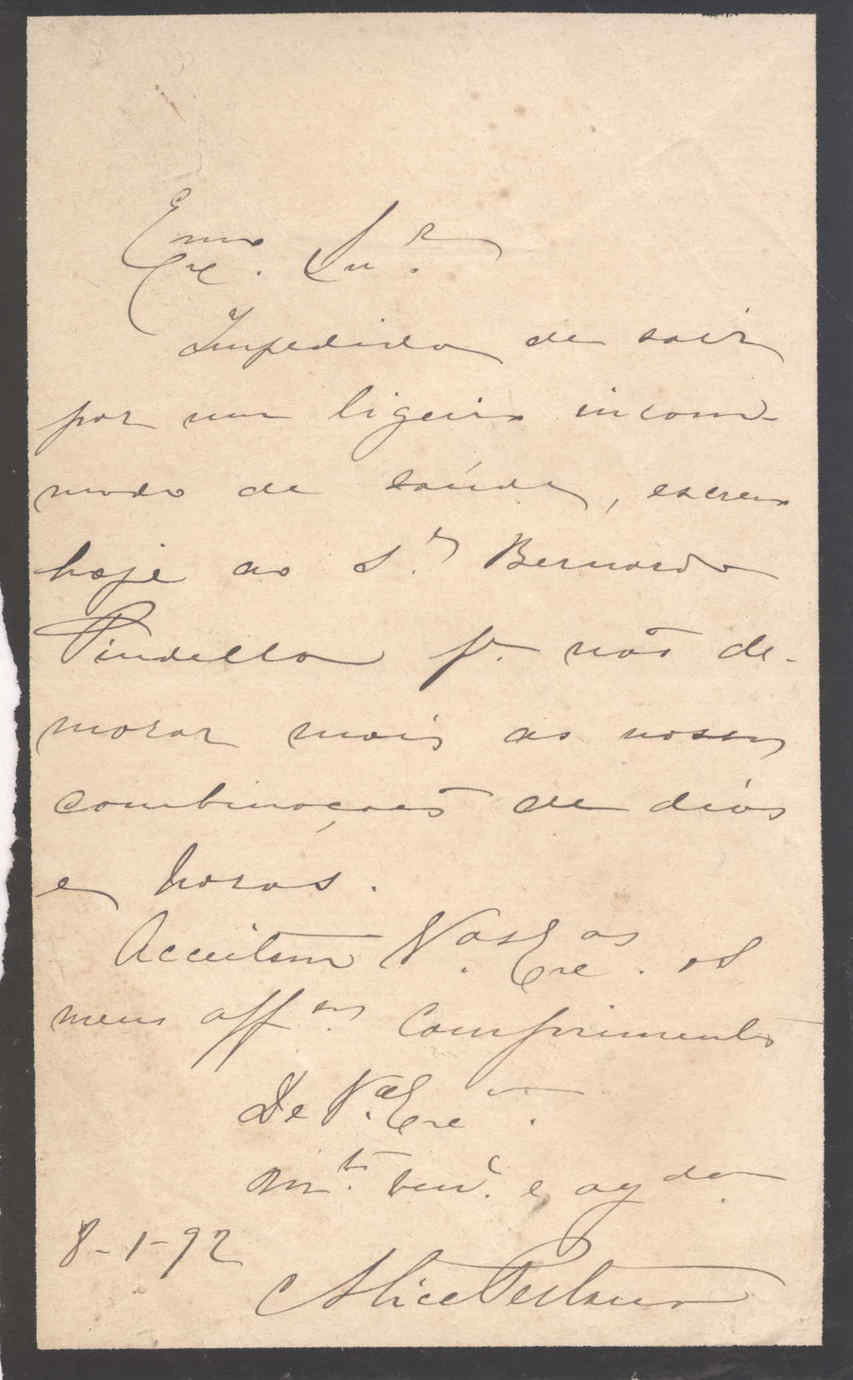 Exmo. Snr.
Impedida de sair
por um ligeiro incom-
modo de saúde, escrevo
hoje ao Sr. Bernardo
Pindella pa. não de-
morar mais as nossas
combinações de dias
e horas.
Acceitem Vas. Excas. os
meus affos. comprimentos
De Va. Exca.
Mto. ven. e agda.
8-1-92
Alice Pestana